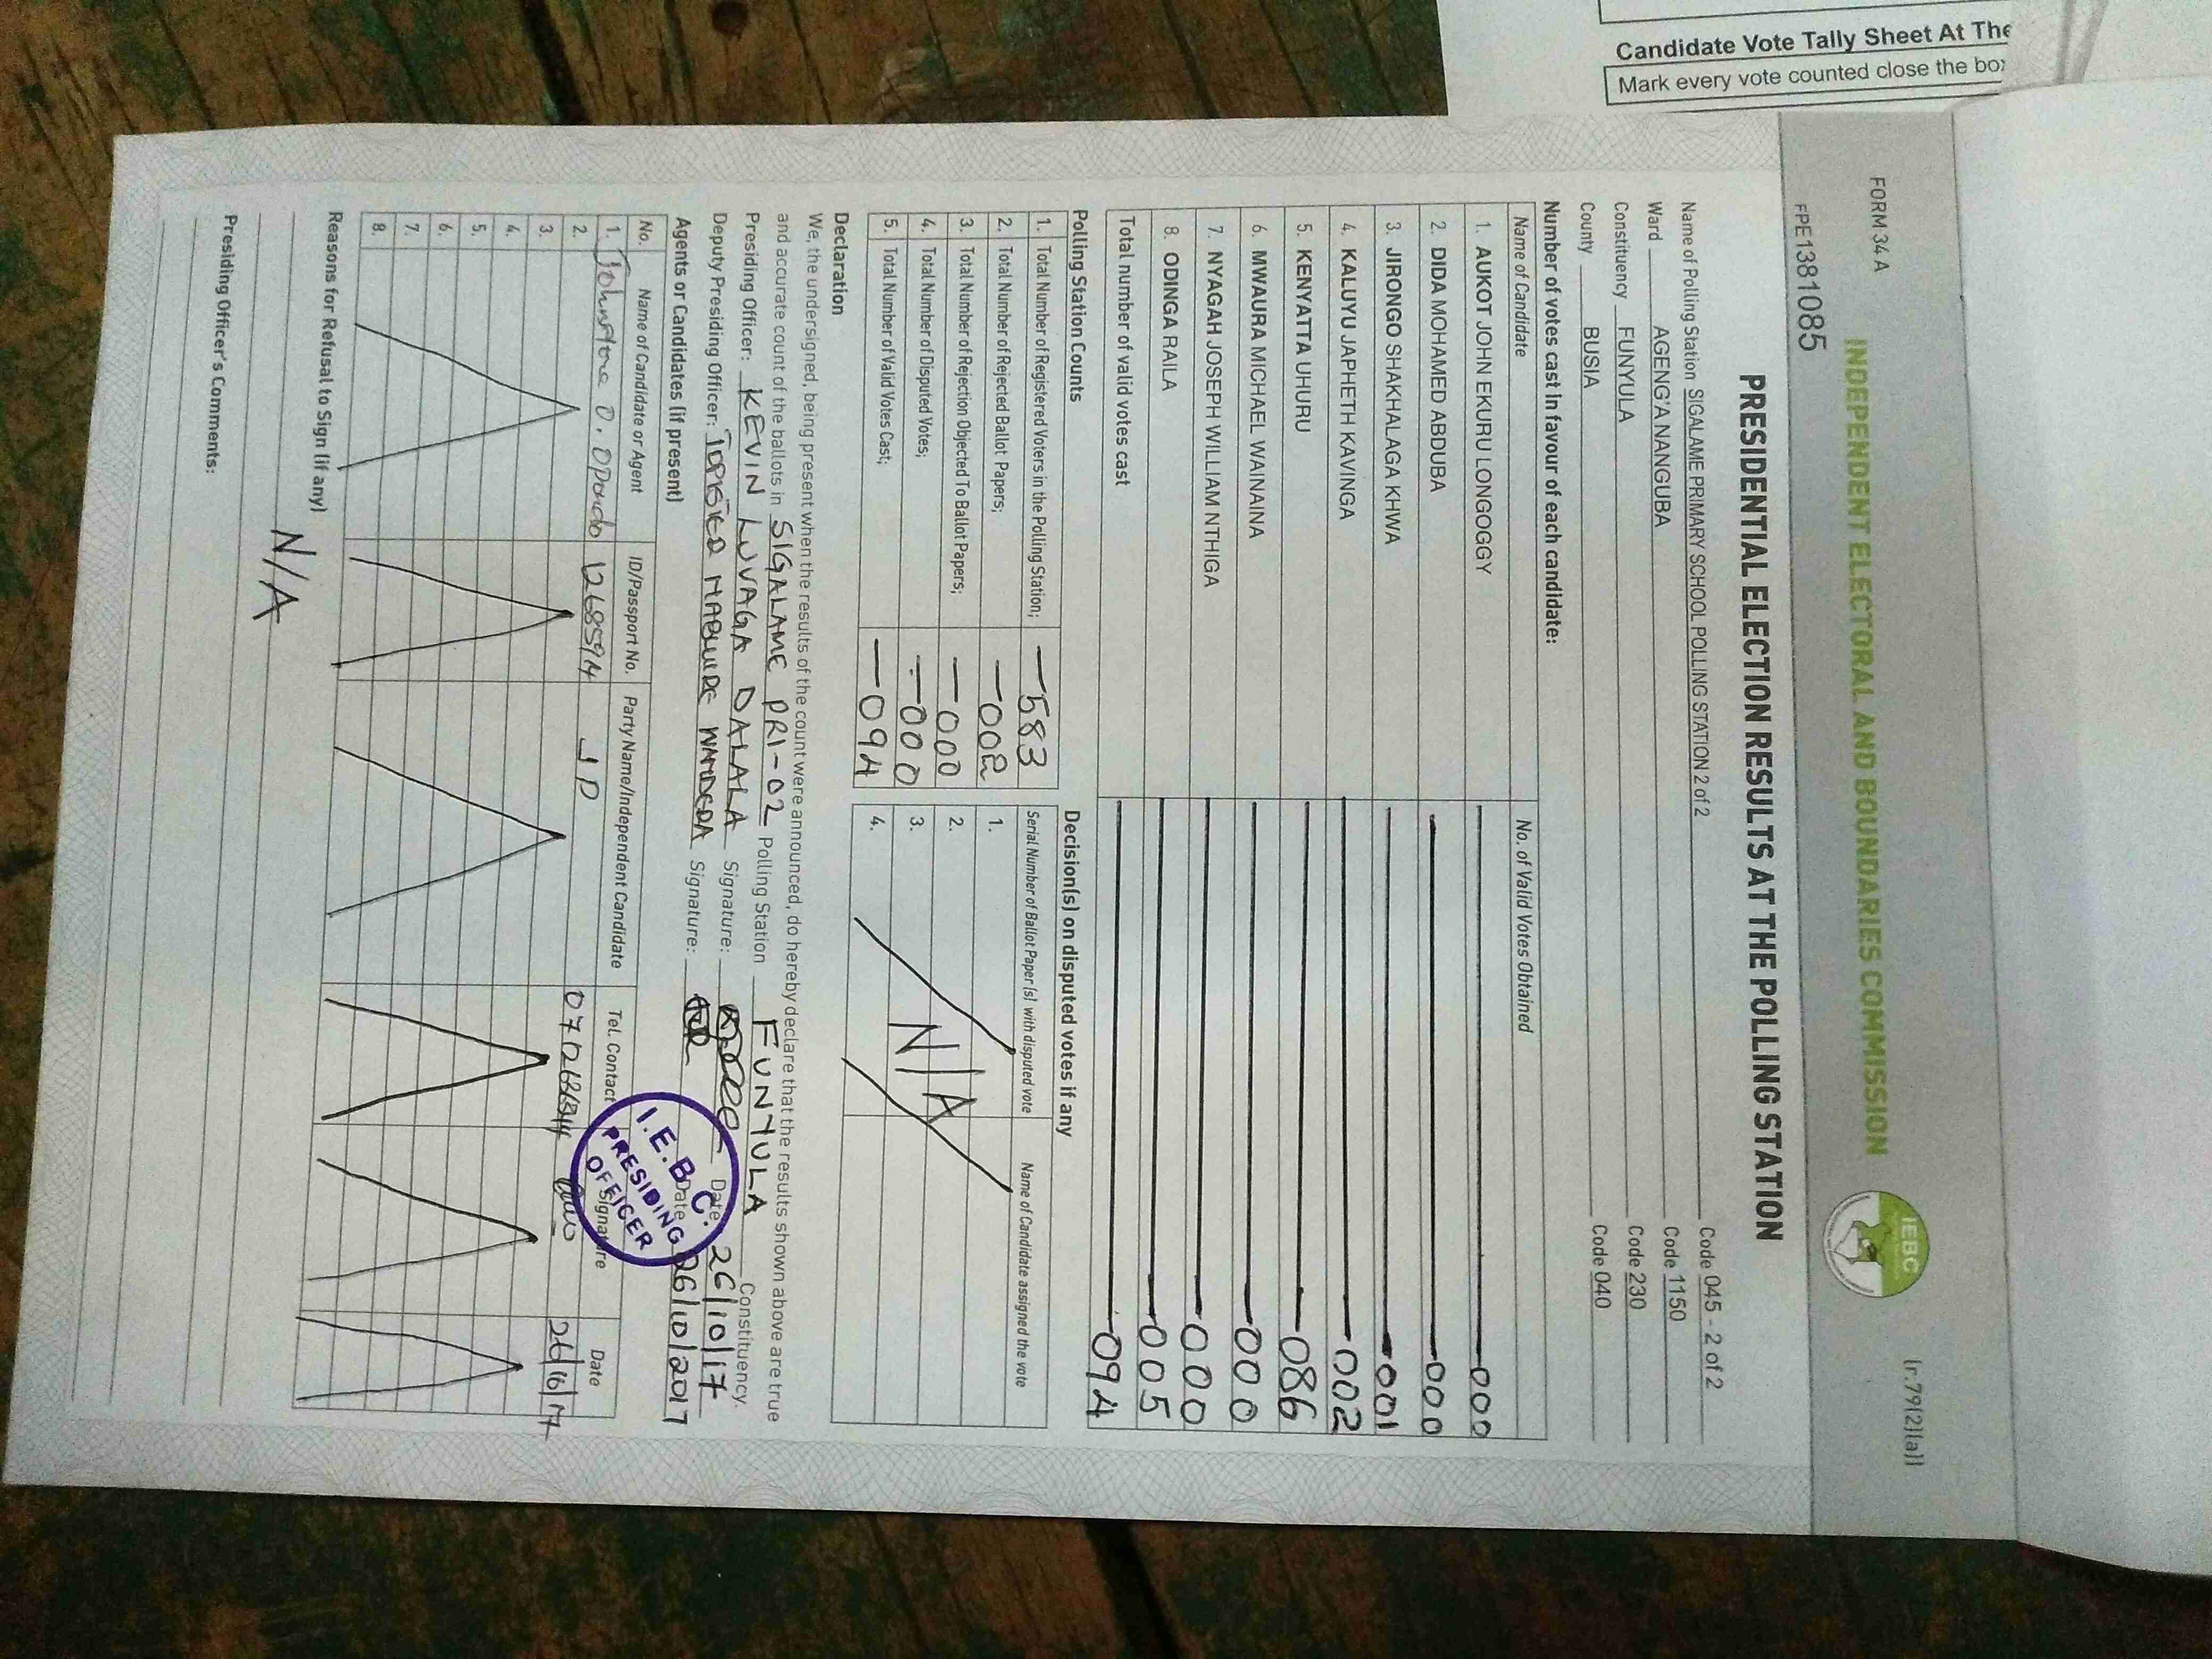 Candidate Vote Tally Sheet At The
Mark every vote counted close the box
FORM 34 A
(r.79(2)(a))
INDEPENDENT ELECTORAL AND BOUNDARIES COMMISSION
IEBC
FPE1381085
PRESIDENTIAL ELECTION RESULTS AT THE POLLING STATION
Name of Polling Station SIGALAME PRIMARY SCHOOL POLLING STATION 2 of 2 Code 045 - 2 of 2
Ward AGENG'A NANGUBA Code 1150
Constituency FUNYULA Code 230
County BUSIA Code 040
Number of votes cast in favour of each candidate:
Name of Candidate No. of Valid Votes Obtained
1. AUKOT JOHN EKURU LONGOGGY 000
2. DIDA MOHAMED ABDUBA 000
3. JIRONGO SHAKHALAGA KHWA 001
4. KALUYU JAPHETH KAVINGA 002
5. KENYATTA UHURU 086
6. MWAURA MICHAEL WAINAINA 000
7. NYAGAH JOSEPH WILLIAM NTHIGA 000
8. ODINGA RAILA 005
Total number of valid votes cast 094
Polling Station Counts
1. Total Number of Registered Voters in the Polling Station; 583
2. Total Number of Rejected Ballot Papers; 002
3. Total Number of Rejection Objected To Ballot Papers; 000
4. Total Number of Disputed Votes; 000
5. Total Number of Valid Votes Cast; 094
Decision(s) on disputed votes if any
Serial Number of Ballot Paper (s) with disputed vote Name of Candidate assigned the vote
1.
2.
3.
4.
N/A
Declaration
We, the undersigned, being present when the results of the count were announced, do hereby declare that the results shown above are true
and accurate count of the ballots in SIGALAME PRI-02 Polling Station FUNYULA Constituency.
Presiding Officer: KEVIN LUVAGA DALALA Signature: Date: 26/10/17
Deputy Presiding Officer: Signature: Date 26/10/2017
Agents or Candidates (if present)
No. Name of Candidate or Agent ID/Passport No. Party Name/Independent Candidate Tel. Contact Signature Date
1. Johnstone O. Opondo 12685914 JP
2.
3.
4.
5.
6.
7.
8.
I.E.B.C.
PRESIDING
OFFICER
Reasons for Refusal to Sign (if any)
N/A
Presiding Officer's Comments: